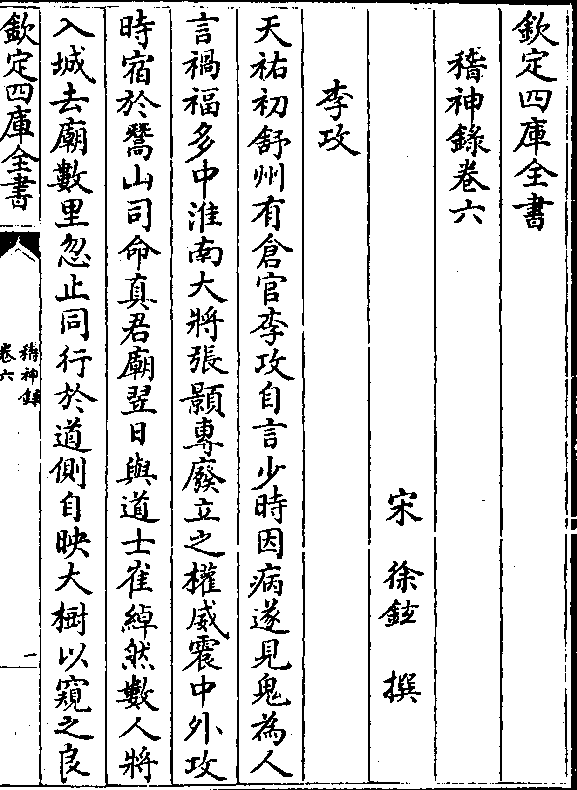 欽定四庫全書
稽神錄卷六
宋 徐鉉 撰
李攻
天祐初舒州有倉官李攻自言少時因病遂見鬼為人
言禍福多中淮南大將張顥專廢立之權威震中外攻
時宿於灊山司命真君廟翌日與道士崔綽然數人將
入城去廟數里忽止同行於道側自映大樹以窺之良
欽定四庫全書
稽神錄
卷六
一